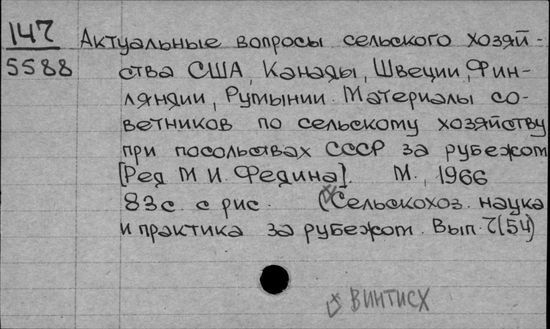 147
5588
Актуальные вопросы сельского хозяй-
ства США, Канады, Швеции, Фин-
ляндии, Румынии. Материалы со-
ветников по сельскому хозяйству
при посольствах СССР за рубежом
[Ред М И. Федина]. М., 1966
83с. с рис. (Сельскохоз. наука
и практика за рубежом. Вып. 7(54)
ВИНТИСХ